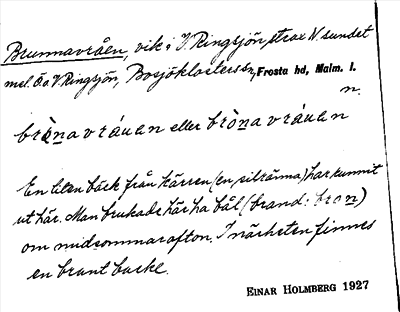 Brunnavråen, vik i V. Ringsjön, strax N. sundet
mel. Ö. o V. Ringsjön, Bosjöklosters sn, Frosta hd, Malm. l.
n.
brònavráuan eller brònavráuan
En liten bäck från kärren (en silränna) har runnit
ut här. Man brukade här ha bål (brand: bron)
om midsommarafton. I närheten finnes
en brant backe.
EINAR HOLMBERG 1927